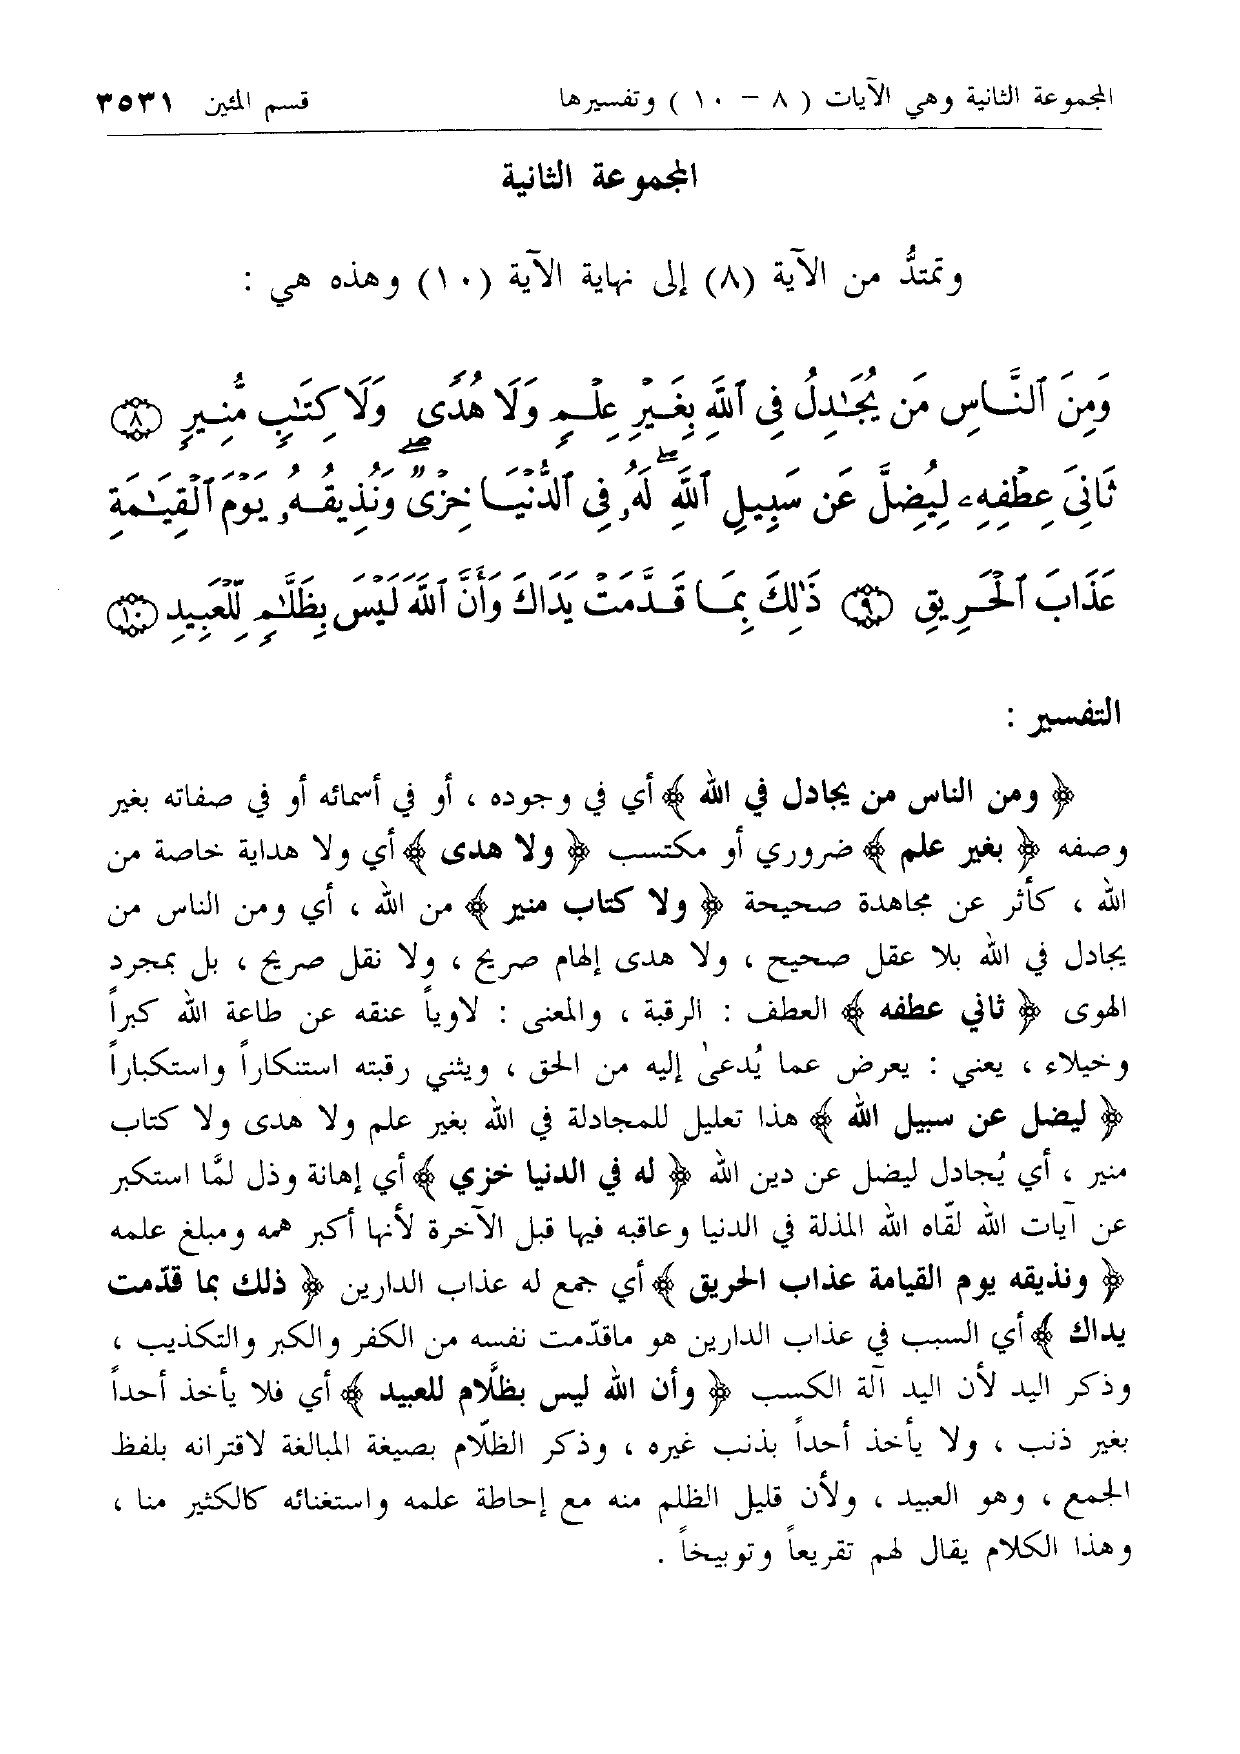 المجموعة الثانية وهي الآيات ( ٨ – ١٠ ) وتفسيرها قسم المئين ٣٥٣١
المجموعة الثانية
وتمتدُّ من الآية (٨) إلى نهاية الآية (١٠) وهذه هي :
وَمِنَ ٱلنَّاسِ مَن يُجَٰدِلُ فِى ٱللَّهِ بِغَيْرِ عِلْمٍ وَلَا هُدًى وَلَا كِتَٰبٍ مُّنِيرٍ ﴿٨﴾
ثَانِىَ عِطْفِهِۦ لِيُضِلَّ عَن سَبِيلِ ٱللَّهِ ۖ لَهُۥ فِى ٱلدُّنْيَا خِزْىٌ ۖ وَنُذِيقُهُۥ يَوْمَ ٱلْقِيَٰمَةِ
عَذَابَ ٱلْحَرِيقِ ﴿٩﴾ ذَٰلِكَ بِمَا قَدَّمَتْ يَدَاكَ وَأَنَّ ٱللَّهَ لَيْسَ بِظَلَّٰمٍ لِّلْعَبِيدِ ﴿١٠﴾
التفسير :
﴿ ومن الناس من يجادل في الله ﴾ أي في وجوده ، أو في أسمائه أو في صفاته بغير
وصفه ﴿ بغير علم ﴾ ضروري أو مكتسب ﴿ ولا هدى ﴾ أي ولا هداية خاصة من
الله ، كأثر عن مجاهدة صحيحة ﴿ ولا كتاب منير ﴾ من الله ، أي ومن الناس من
يجادل في الله بلا عقل صحيح ، ولا هدى إلهام صريح ، ولا نقل صريح ، بل بمجرد
الهوى ﴿ ثاني عطفه ﴾ العطف : الرقبة ، والمعنى : لاوياً عنقه عن طاعة الله كبراً
وخيلاء ، يعني : يعرض عما يُدعىٰ إليه من الحق ، ويثني رقبته استنكاراً واستكباراً
﴿ ليضل عن سبيل الله ﴾ هذا تعليل للمجادلة في الله بغير علم ولا هدى ولا كتاب
منير ، أي يُجادل ليضل عن دين الله ﴿ له في الدنيا خزي ﴾ أي إهانة وذل لمَّا استكبر
عن آيات الله لقّاه الله المذلة في الدنيا وعاقبه فيها قبل الآخرة لأنها أكبر همه ومبلغ علمه
﴿ ونذيقه يوم القيامة عذاب الحريق ﴾ أي جمع له عذاب الدارين ﴿ ذلك بما قدّمت
يداك ﴾ أي السبب في عذاب الدارين هو ماقدّمت نفسه من الكفر والكبر والتكذيب ،
وذكر اليد لأن اليد آلة الكسب ﴿ وأن الله ليس بظلَّام للعبيد ﴾ أي فلا يأخذ أحداً
بغير ذنب ، ولا يأخذ أحداً بذنب غيره ، وذكر الظلّام بصيغة المبالغة لاقترانه بلفظ
الجمع ، وهو العبيد ، ولأن قليل الظلم منه مع إحاطة علمه واستغنائه كالكثير منا ،
وهذا الكلام يقال لهم تقريعاً وتوبيخاً .